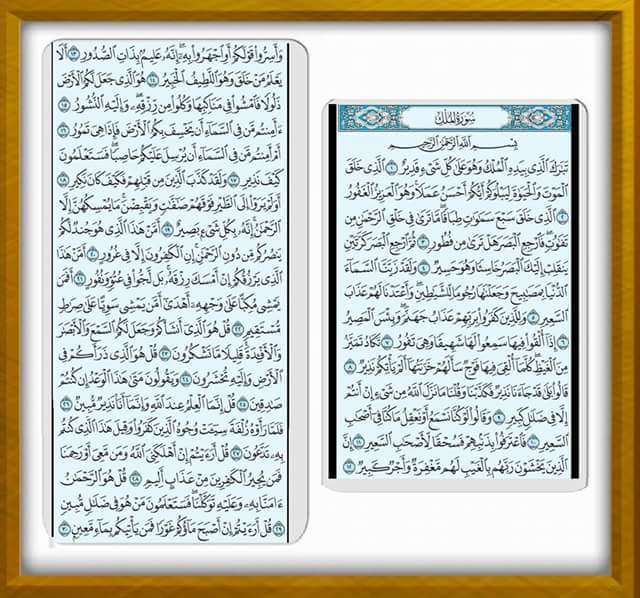 سُورَةُ المُلْكِ
بِسْمِ اللَّهِ الرَّحْمَٰنِ الرَّحِيمِ
تَبَارَكَ الَّذِي بِيَدِهِ الْمُلْكُ وَهُوَ عَلَىٰ كُلِّ شَيْءٍ قَدِيرٌ ١ الَّذِي خَلَقَ
الْمَوْتَ وَالْحَيَاةَ لِيَبْلُوَكُمْ أَيُّكُمْ أَحْسَنُ عَمَلًا وَهُوَ الْعَزِيزُ الْغَفُورُ
٢ الَّذِي خَلَقَ سَبْعَ سَمَاوَاتٍ طِبَاقًا مَّا تَرَىٰ فِي خَلْقِ الرَّحْمَٰنِ مِن
تَفَاوُتٍ فَارْجِعِ الْبَصَرَ هَلْ تَرَىٰ مِن فُطُورٍ ٣ ثُمَّ ارْجِعِ الْبَصَرَ كَرَّتَيْنِ
يَنقَلِبْ إِلَيْكَ الْبَصَرُ خَاسِئًا وَهُوَ حَسِيرٌ ٤ وَلَقَدْ زَيَّنَّا السَّمَاءَ
الدُّنْيَا بِمَصَابِيحَ وَجَعَلْنَاهَا رُجُومًا لِّلشَّيَاطِينِ وَأَعْتَدْنَا لَهُمْ عَذَابَ
السَّعِيرِ ٥ وَلِلَّذِينَ كَفَرُوا بِرَبِّهِمْ عَذَابُ جَهَنَّمَ وَبِئْسَ الْمَصِيرُ
٦ إِذَا أُلْقُوا فِيهَا سَمِعُوا لَهَا شَهِيقًا وَهِيَ تَفُورُ ٧ تَكَادُ تَمَيَّزُ
مِنَ الْغَيْظِ كُلَّمَا أُلْقِيَ فِيهَا فَوْجٌ سَأَلَهُمْ خَزَنَتُهَا أَلَمْ يَأْتِكُمْ نَذِيرٌ ٨
قَالُوا بَلَىٰ قَدْ جَاءَنَا نَذِيرٌ فَكَذَّبْنَا وَقُلْنَا مَا نَزَّلَ اللَّهُ مِن شَيْءٍ إِنْ أَنتُمْ
إِلَّا فِي ضَلَالٍ كَبِيرٍ ٩ وَقَالُوا لَوْ كُنَّا نَسْمَعُ أَوْ نَعْقِلُ مَا كُنَّا فِي أَصْحَابِ
السَّعِيرِ ١٠ فَاعْتَرَفُوا بِذَنبِهِمْ فَسُحْقًا لِّأَصْحَابِ السَّعِيرِ ١١ إِنَّ
الَّذِينَ يَخْشَوْنَ رَبَّهُم بِالْغَيْبِ لَهُم مَّغْفِرَةٌ وَأَجْرٌ كَبِيرٌ ١٢
وَأَسِرُّوا قَوْلَكُمْ أَوِ اجْهَرُوا بِهِ إِنَّهُ عَلِيمٌ بِذَاتِ الصُّدُورِ ١٣ أَلَا
يَعْلَمُ مَنْ خَلَقَ وَهُوَ اللَّطِيفُ الْخَبِيرُ ١٤ هُوَ الَّذِي جَعَلَ لَكُمُ الْأَرْضَ
ذَلُولًا فَامْشُوا فِي مَنَاكِبِهَا وَكُلُوا مِن رِّزْقِهِ وَإِلَيْهِ النُّشُورُ ١٥
ءَأَمِنتُم مَّن فِي السَّمَاءِ أَن يَخْسِفَ بِكُمُ الْأَرْضَ فَإِذَا هِيَ تَمُورُ ١٦
أَمْ أَمِنتُم مَّن فِي السَّمَاءِ أَن يُرْسِلَ عَلَيْكُمْ حَاصِبًا فَسَتَعْلَمُونَ
كَيْفَ نَذِيرِ ١٧ وَلَقَدْ كَذَّبَ الَّذِينَ مِن قَبْلِهِمْ فَكَيْفَ كَانَ نَكِيرِ ١٨
أَوَلَمْ يَرَوْا إِلَى الطَّيْرِ فَوْقَهُمْ صَافَّاتٍ وَيَقْبِضْنَ مَا يُمْسِكُهُنَّ إِلَّا
الرَّحْمَٰنُ إِنَّهُ بِكُلِّ شَيْءٍ بَصِيرٌ ١٩ أَمَّنْ هَٰذَا الَّذِي هُوَ جُندٌ لَّكُمْ
يَنصُرُكُم مِّن دُونِ الرَّحْمَٰنِ إِنِ الْكَافِرُونَ إِلَّا فِي غُرُورٍ ٢٠ أَمَّنْ هَٰذَا
الَّذِي يَرْزُقُكُمْ إِنْ أَمْسَكَ رِزْقَهُ بَل لَّجُّوا فِي عُتُوٍّ وَنُفُورٍ ٢١ أَفَمَن
يَمْشِي مُكِبًّا عَلَىٰ وَجْهِهِ أَهْدَىٰ أَمَّن يَمْشِي سَوِيًّا عَلَىٰ صِرَاطٍ
مُّسْتَقِيمٍ ٢٢ قُلْ هُوَ الَّذِي أَنشَأَكُمْ وَجَعَلَ لَكُمُ السَّمْعَ وَالْأَبْصَارَ
وَالْأَفْئِدَةَ قَلِيلًا مَّا تَشْكُرُونَ ٢٣ قُلْ هُوَ الَّذِي ذَرَأَكُمْ فِي
الْأَرْضِ وَإِلَيْهِ تُحْشَرُونَ ٢٤ وَيَقُولُونَ مَتَىٰ هَٰذَا الْوَعْدُ إِن كُنتُمْ
صَادِقِينَ ٢٥ قُلْ إِنَّمَا الْعِلْمُ عِندَ اللَّهِ وَإِنَّمَا أَنَا نَذِيرٌ مُّبِينٌ ٢٦
فَلَمَّا رَأَوْهُ زُلْفَةً سِيئَتْ وُجُوهُ الَّذِينَ كَفَرُوا وَقِيلَ هَٰذَا الَّذِي كُنتُم
بِهِ تَدَّعُونَ ٢٧ قُلْ أَرَأَيْتُمْ إِنْ أَهْلَكَنِيَ اللَّهُ وَمَن مَّعِيَ أَوْ رَحِمَنَا
فَمَن يُجِيرُ الْكَافِرِينَ مِنْ عَذَابٍ أَلِيمٍ ٢٨ قُلْ هُوَ الرَّحْمَٰنُ
ءَامَنَّا بِهِ وَعَلَيْهِ تَوَكَّلْنَا فَسَتَعْلَمُونَ مَنْ هُوَ فِي ضَلَالٍ مُّبِينٍ
٢٩ قُلْ أَرَأَيْتُمْ إِنْ أَصْبَحَ مَاؤُكُمْ غَوْرًا فَمَن يَأْتِيكُم بِمَاءٍ مَّعِينٍ ٣٠